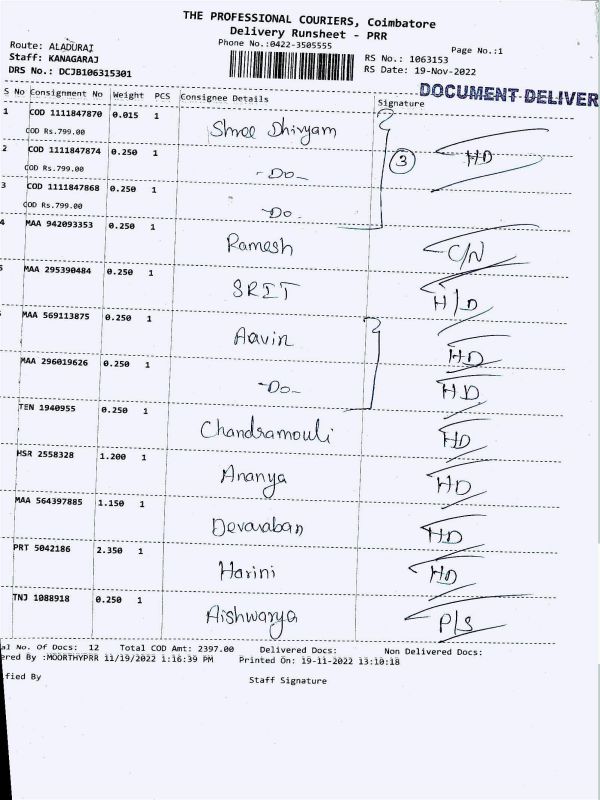 THE PROFESSIONAL COURIERS, Coimbatore
Delivery Runsheet - PRR
Phone No.:0422-3505555
Page No.:1
Route: ALADURAI
Staff: KANAGARAJ
DRS No.: DCJB106315301
RS No.: 1063153
RS Date: 19-Nov-2022
DOCUMENT DELIVER
S No Consignment No Weight PCS Consignee Details Signature
1 COD 1111847870 0.015 1 Shree Dhivyam
COD Rs.799.00
3 HD
2 COD 1111847874 0.250 1 -Do-
COD Rs.799.00
3 COD 1111847868 0.250 1 -Do-
COD Rs.799.00
4 MAA 942093353 0.250 1 Ramesh C/N
MAA 295390484 0.250 1 SRIT H/D
MAA 569113875 0.250 1 Aavin HD
MAA 296019626 0.250 1 -Do- HD
TEN 1940955 0.250 1 Chandramouli HD
HSR 2558328 1.200 1 Ananya HD
MAA 564397885 1.150 1 Devaraban HD
PRT 5042186 2.350 1 Harini HD
TNJ 1088918 0.250 1 Aishwarya P/S
al No. Of Docs: 12 Total COD Amt: 2397.00 Delivered Docs: Non Delivered Docs:
ered By :MOORTHYPRR 11/19/2022 1:16:39 PM Printed On: 19-11-2022 13:10:18
ified By Staff Signature